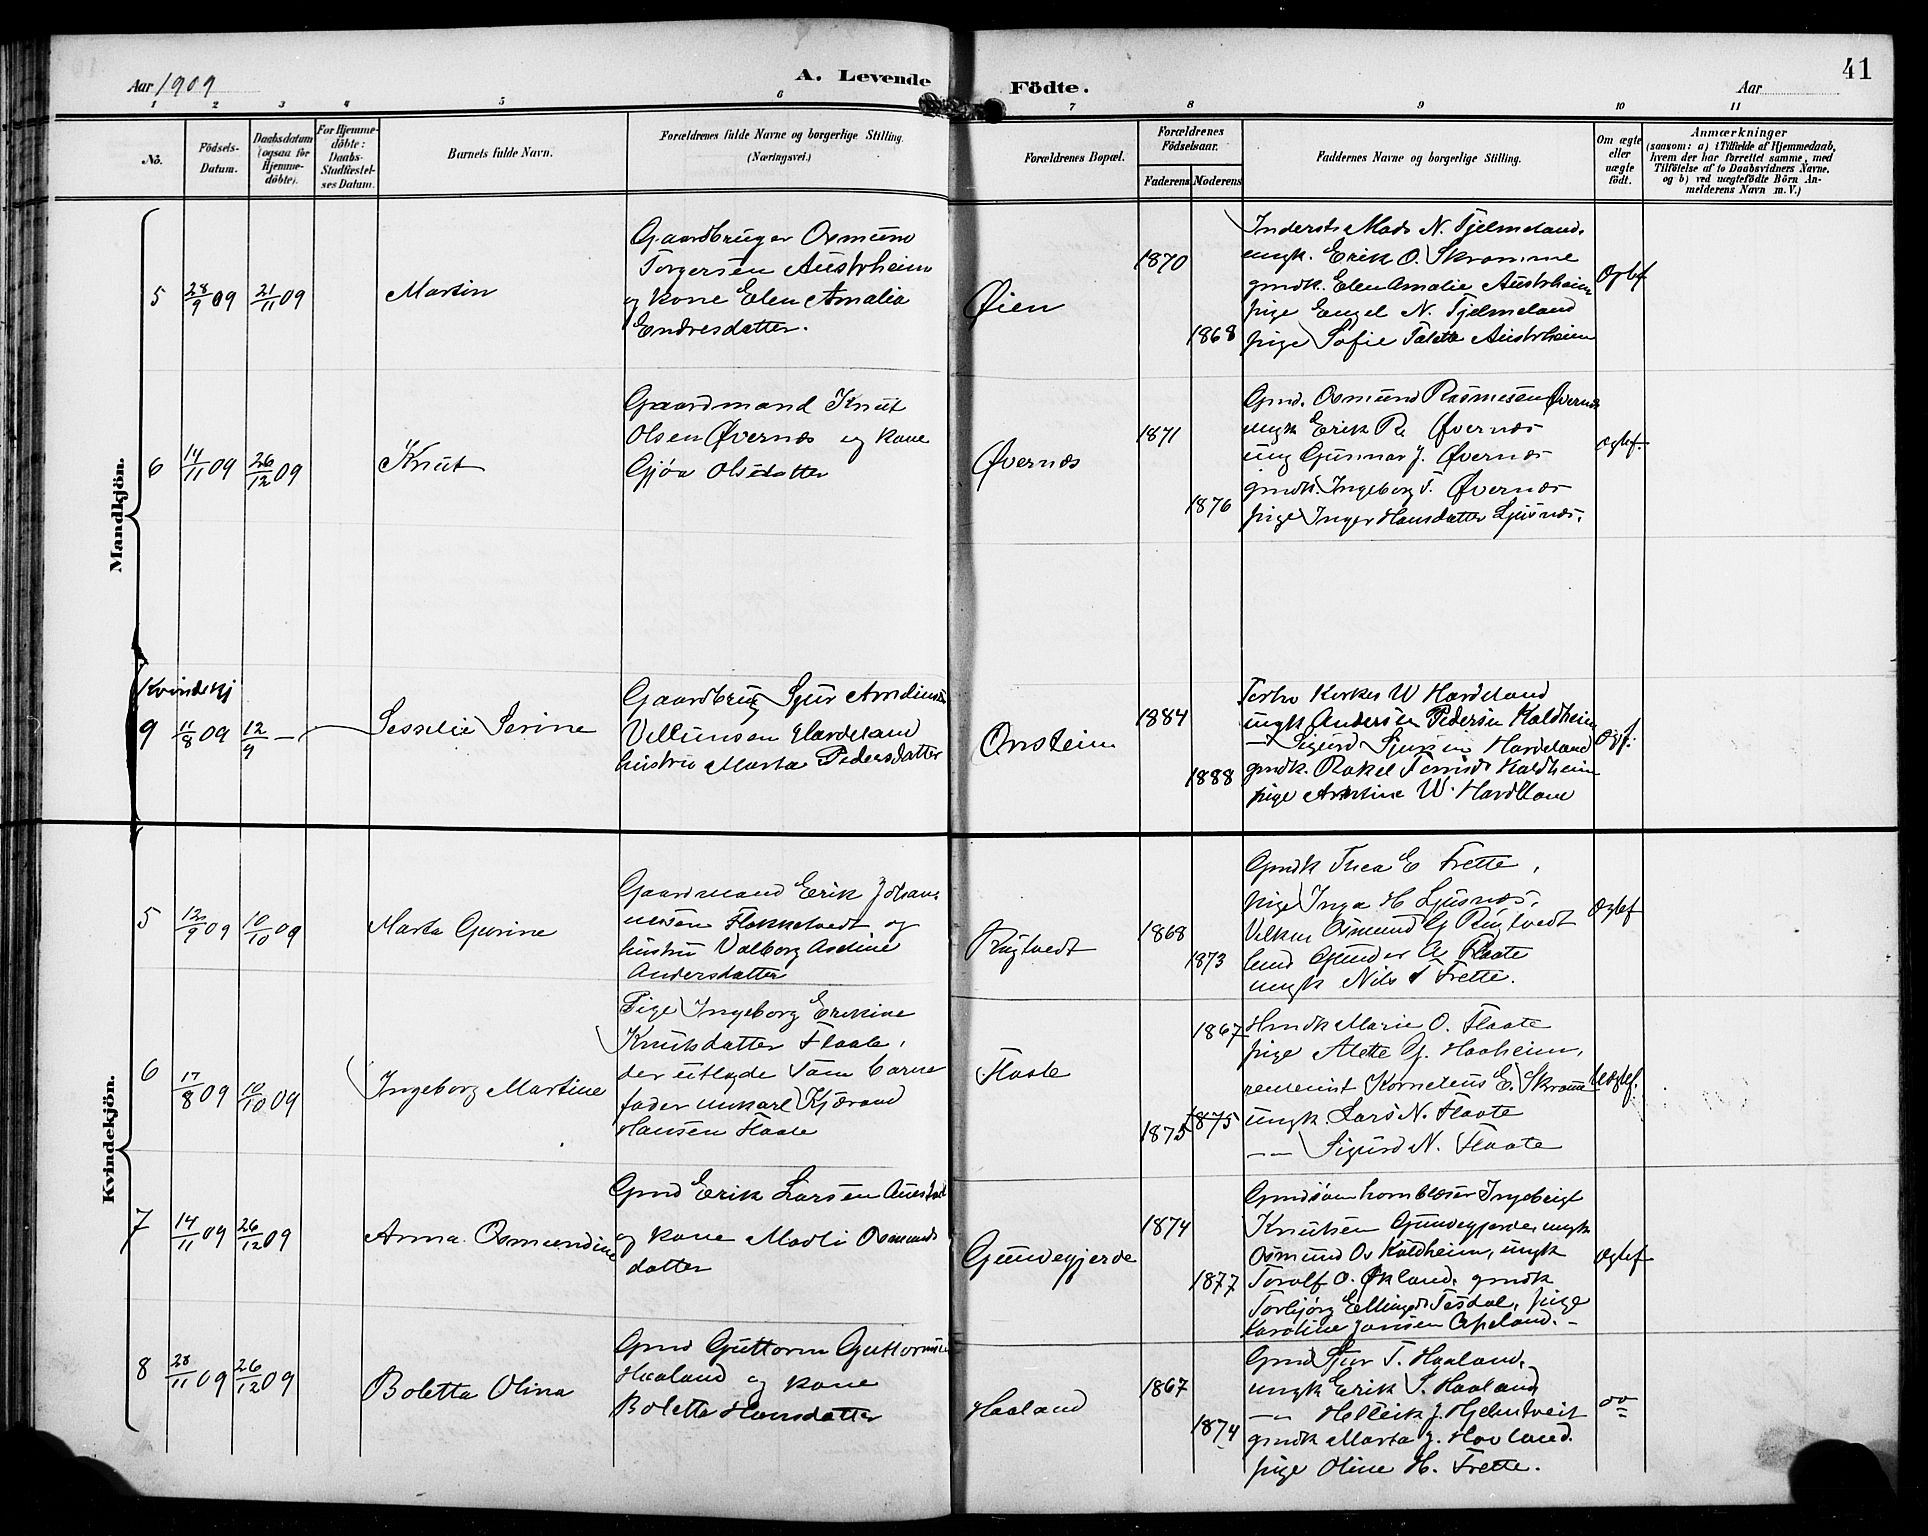 Aar 1909
A. Levende
Födte.
Aar
41
1 2 3 4 5 6 7 8 9 10 11
No.
Födsels-Datum.
Daabsdatum (ogsaa for Hjemme-döbte).
For Hjemme-döbte: Daabs-Stadfæstel-ses Datum.
Barnets fulde Navn.
Forældrenes fulde Navne og borgerlige Stilling.
(Næringsvei.)
Forældrenes Bopæl.
Forældrenes Födselsaar.
Faderens Moderens
Faddernes Navne og borgerlige Stilling.
Om ægte eller uægte födt.
Anmærkninger
(saasom: a) i Tilfælde af Hjemmedaab,
hvem der har forrettet samme, med
Tilföielse af to Daabsvidners Navne.
og b) ved uægtefödte Börn An-
melderens Navn m. V.)
Mandkjön.
5 28/9 09 21/11 09 Martin
Gaardbruger Osmund
Torgersen Austrheim
og kone Elen Amalia
Endresdatter.
Øien
1870
1868
Inderst Mads N. Tjelmeland.
ungk. Erik O. Skromme
gmdk. Elen Amalie Austrheim
pige Engel N. Tjelmeland
pige Sofie Taletta Austrheim
Ægtef
6 14/11 09 26/12 09 Knut
Gaardmand Knut
Olsen Øvernæs og kone
Gjøa Olsdatter
Øvernæs
1871
1876
Gmd. Osmund Rasmusen Øvernæs
ungk Erik R. Øvernæs
ung Gunnar J. Øvernæs
gmdk. Ingeborg T. Øvernæs
pige Inger Hansdatter Ljusnæs.
ægtef.
Kvindekj
9 11/8 09 12/9 — Sesselie Serine
Gaardbrug Sjur
Villumsen Hardeland
hustru Marta Pedersdatter
Onsteim
1884
1888
W Hardeland
ungk Anders Pedersen Kaldheim
— Sigurd Sjursen Hardeland
gmdk. Rakel Kaldheim
pige W. Hardeland
Ægf.
Kvindekjön.
5 12/9 09 10/10 09 Marta Gurine
Gaardmand Erik Johan
nesen Flokketvedt og
hustru Valborg Aseline
Andersdatter
Rygtvedt
1868
1873
Gmdk Thea E Frette,
pige Inga H Ljusnæs,
Osmund G Rygtvedt
Gunder A Flaate
ungk Nils T Frette.
Ægtef
6 17/8 09 10/10 09 Ingeborg Martine
Pige Ingeborg Erikine
Knutsdatter Flaate,
der utlagde som barne
fader unkarl Kjærand
Hansen Flaate
Flaate
1867
1875 1875
Hmdk Marie O. Flaate
pige Alette G. Haaheim,
Kornelius E. Skromme
ungk. Lars N. Flaate
— — Sigurd N. Flaate
Uægtef.
7 14/11 09 26/12 09 Anna Osmundine
Gmd Erik Larsen
og kone Madli Osmunds
datter
Gundegjerde
1874
1877
Gmdsøn hornblæser Ingebrigt
Knutsen Gundegjerde, ungk
Osmund Os Kaldheim, ungk
Torolf O. Økland, gmdk
Torbjørg Ellingsd Tesdal, pige
Karoline Jansen Opeland. —
Ægtef
8 28/11 09 26/12 09 Boletta Olina
Gmd Guttorm Guttormsen
Haaland og kone
Bolette Hansdatter
Haaland
1867
1874
Gmd Sjur T. Haaland,
ungk Erik S. Haaland
— — Helleik J. Hjelmtveit
gmdk Marta J. Hovland.
pige Oline H. Frette.